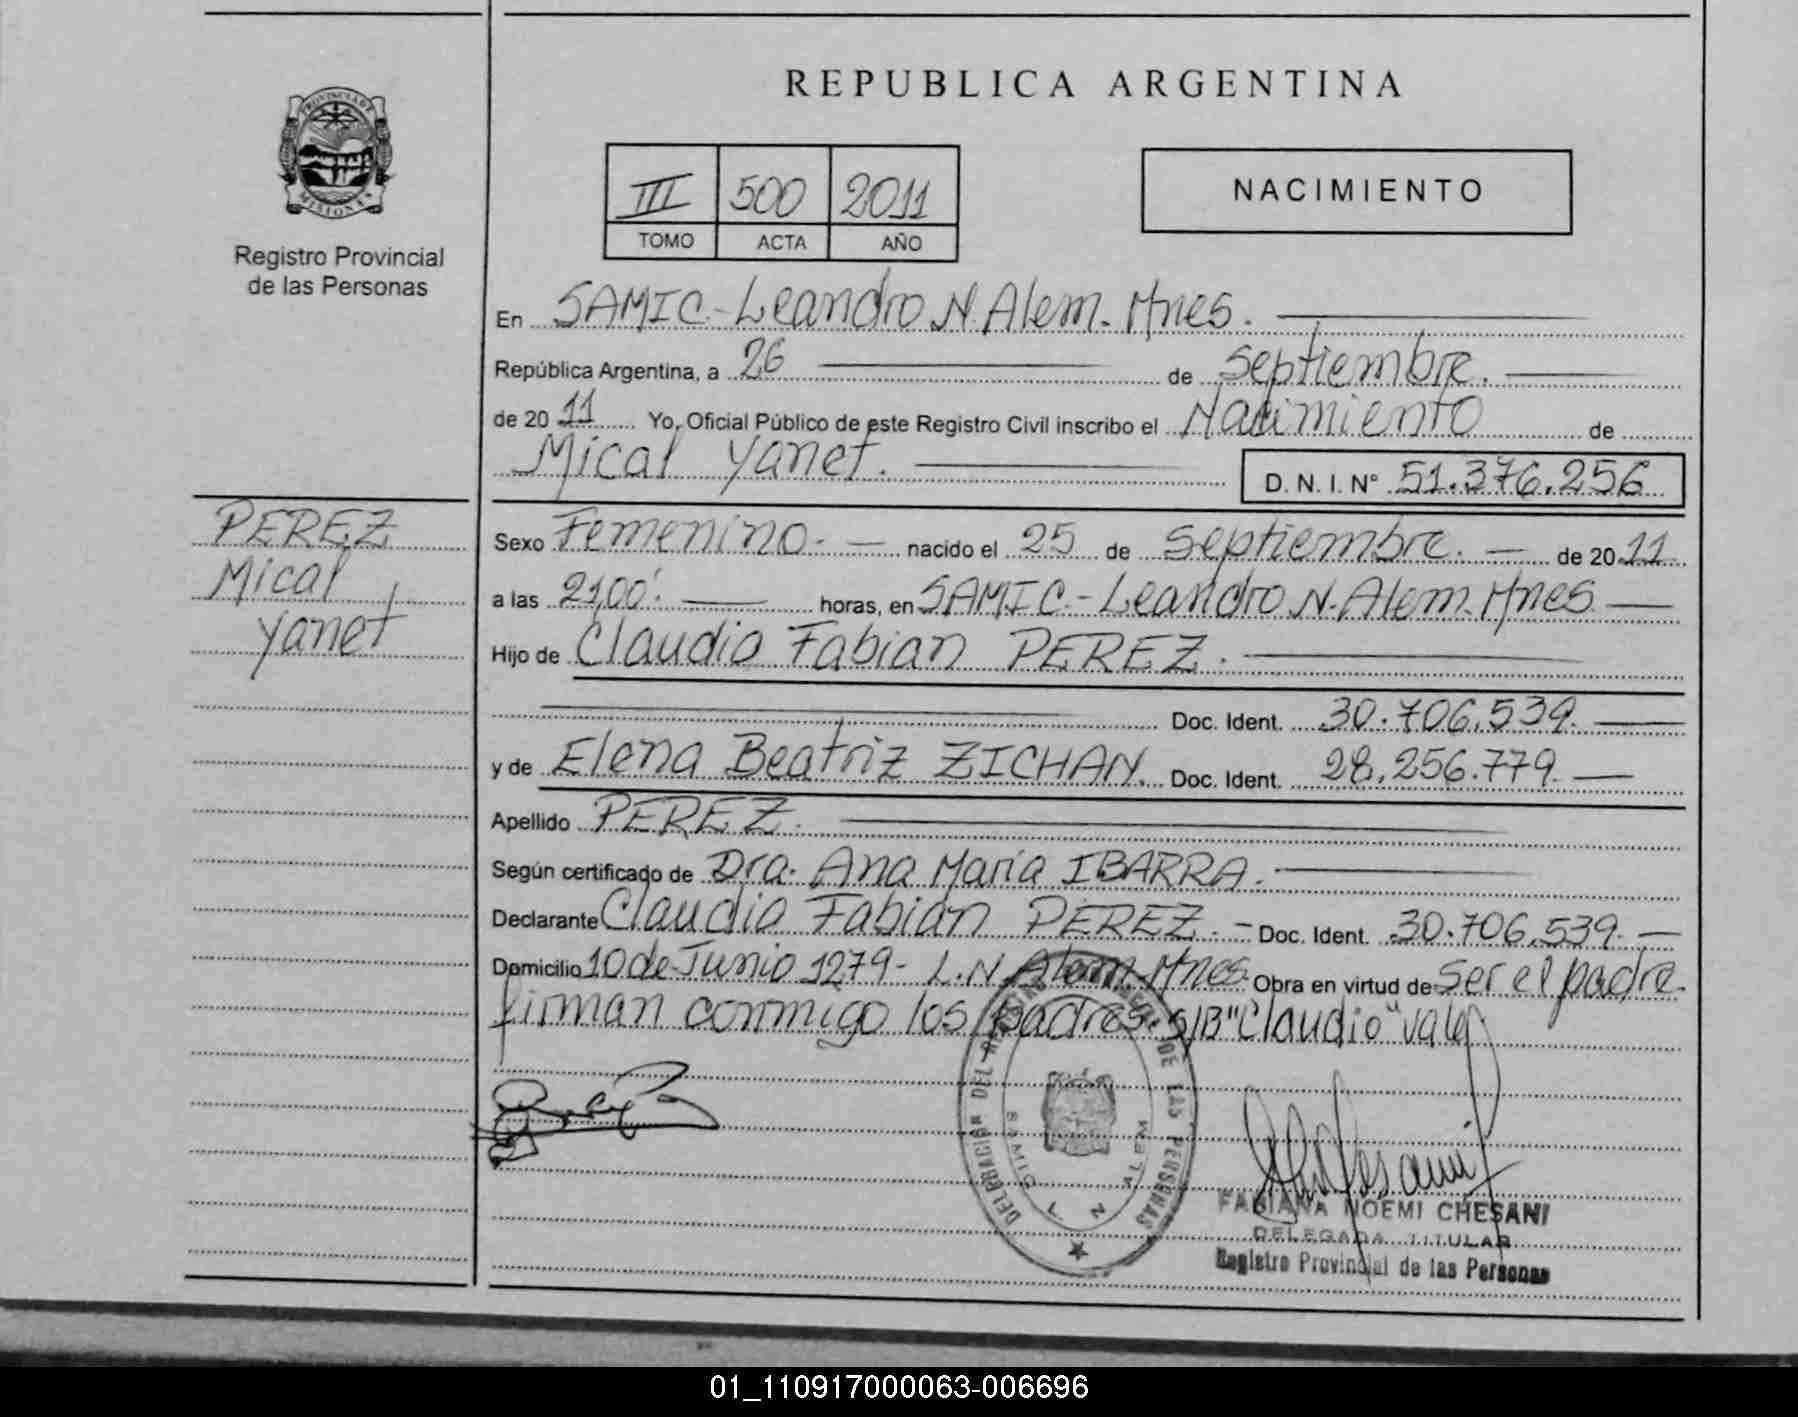 REPUBLICA ARGENTINA
PROVINCIA DE
MISIONES
Registro Provincial
de las Personas
III 500 2011
TOMO ACTA AÑO
NACIMIENTO
En SAMIC.-Leandro N. Alem. Mnes.
República Argentina, a 26 de septiembre.
de 20 11 Yo, Oficial Público de este Registro Civil inscribo el Nacimiento de
Mical Yanet.
D. N. I. N° 51.376.256
PEREZ
Mical
Yanet
Sexo Femenino.- nacido el 25 de septiembre. de 20 11
a las 21,00'. horas, en SAMIC.-Leandro N. Alem. Mnes
Hijo de Claudio Fabian PEREZ.
Doc. Ident. 30.706.539.
y de Elena Beatriz ZICHAN. Doc. Ident. 28.256.779.
Apellido PEREZ.
Según certificado de Dra. Ana Maria IBARRA.
Declarante Claudio Fabian PEREZ.- Doc. Ident. 30.706.539.
Domicilio 10 de Junio 1279- L.N. Alem. Mnes Obra en virtud de ser el padre
firman conmigo los padres. S/B "Claudio" vale
DELEGACION DEL REGISTRO PROVINCIAL DE LAS PERSONAS
SAMIC L. N. ALEM
FABIANA NOEMI CHESANI
DELEGADA TITULAR
Registro Provincial de las Personas
01_110917000063-006696